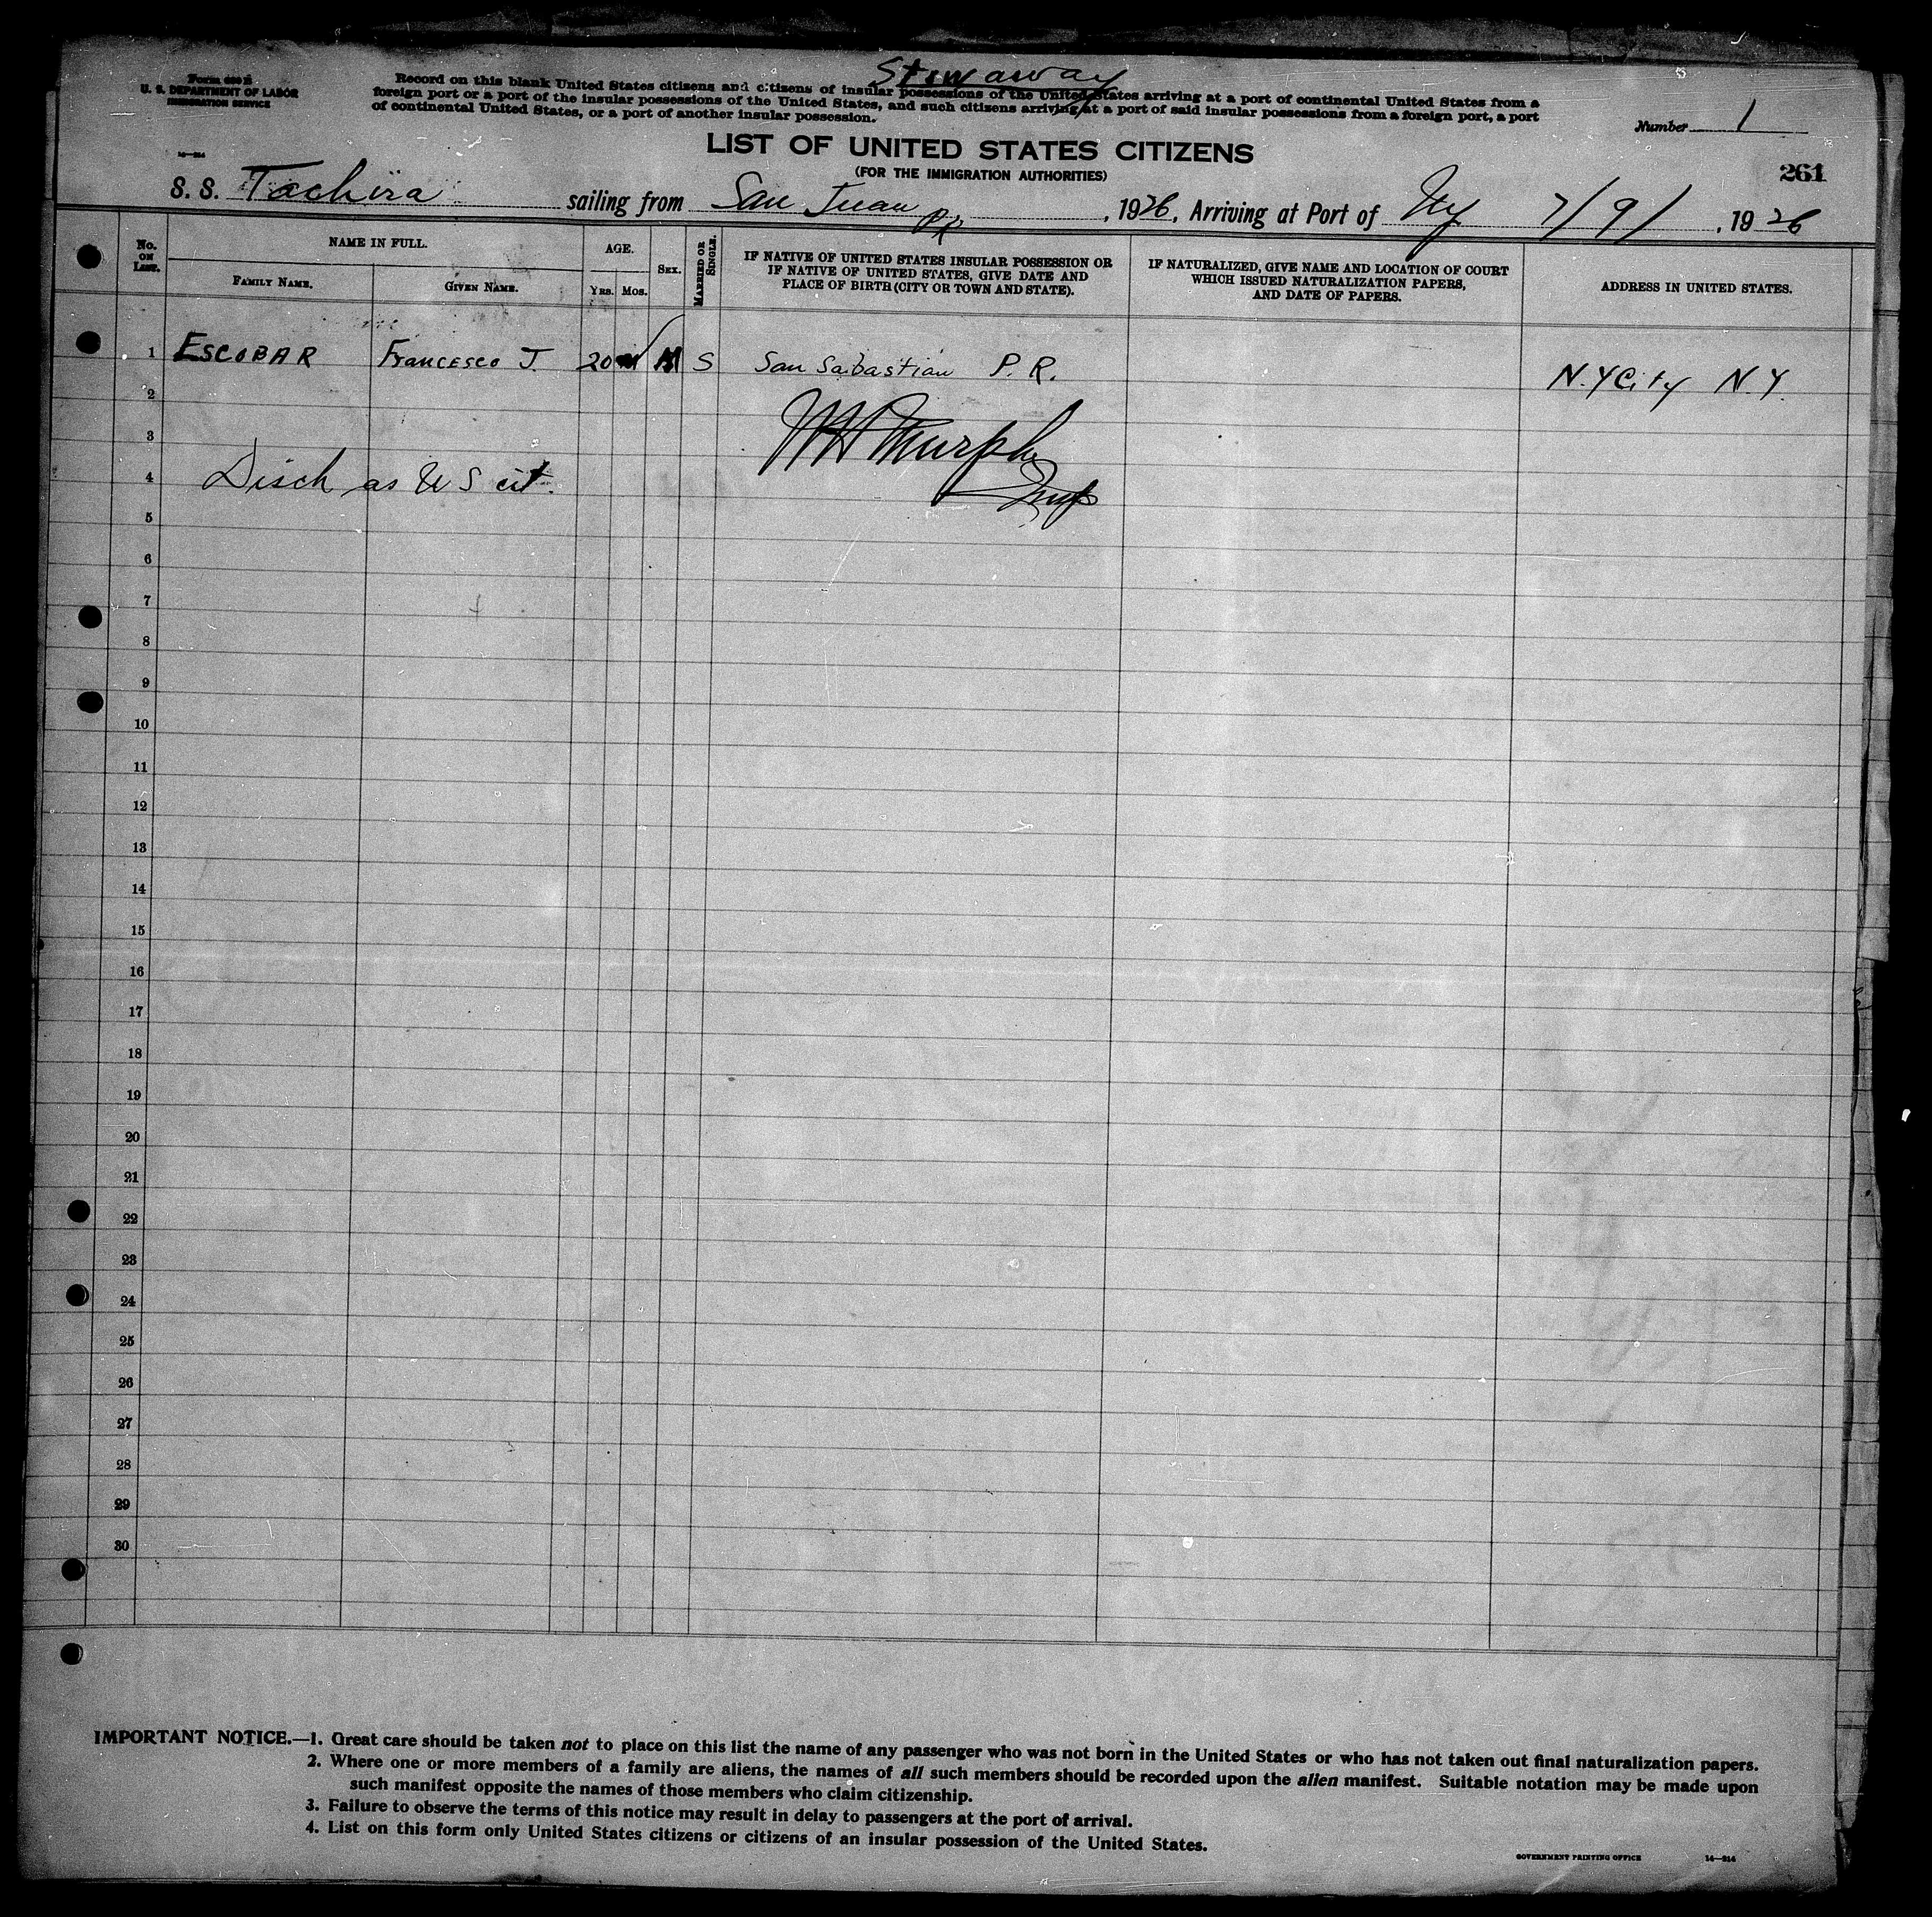 Stowaway
Form 630 B
U. S. DEPARTMENT OF LABOR
IMMIGRATION SERVICE
Record on this blank United States citizens and citizens of insular possessions of the United States arriving at a port of continental United States from a
foreign port or a port of the insular possessions of the United States, and such citizens arriving at a port of said insular possessions from a foreign port, a port
of continental United States, or a port of another insular possession.
Number 1
14—214
LIST OF UNITED STATES CITIZENS
(FOR THE IMMIGRATION AUTHORITIES)
261
S. S. Tachira sailing from San Juan PR, 1926, Arriving at Port of NY 7/9/, 1926
No. ON LIST.
NAME IN FULL.
FAMILY NAME.
GIVEN NAME.
AGE.
YRS. MOS.
SEX.
MARRIED OR SINGLE.
IF NATIVE OF UNITED STATES INSULAR POSSESSION OR
IF NATIVE OF UNITED STATES, GIVE DATE AND
PLACE OF BIRTH (CITY OR TOWN AND STATE).
IF NATURALIZED, GIVE NAME AND LOCATION OF COURT
WHICH ISSUED NATURALIZATION PAPERS,
AND DATE OF PAPERS.
ADDRESS IN UNITED STATES.
1 ESCOBAR Francesco J. 20 M S San Sabastian P.R. N.Y City N.Y.
2
3
4 Disch as U S cit. Murphy Insp
5
6
7
8
9
10
11
12
13
14
15
16
17
18
19
20
21
22
23
24
25
26
27
28
29
30
IMPORTANT NOTICE.—1. Great care should be taken not to place on this list the name of any passenger who was not born in the United States or who has not taken out final naturalization papers.
2. Where one or more members of a family are aliens, the names of all such members should be recorded upon the alien manifest. Suitable notation may be made upon
such manifest opposite the names of those members who claim citizenship.
3. Failure to observe the terms of this notice may result in delay to passengers at the port of arrival.
4. List on this form only United States citizens or citizens of an insular possession of the United States.
GOVERNMENT PRINTING OFFICE 14—214